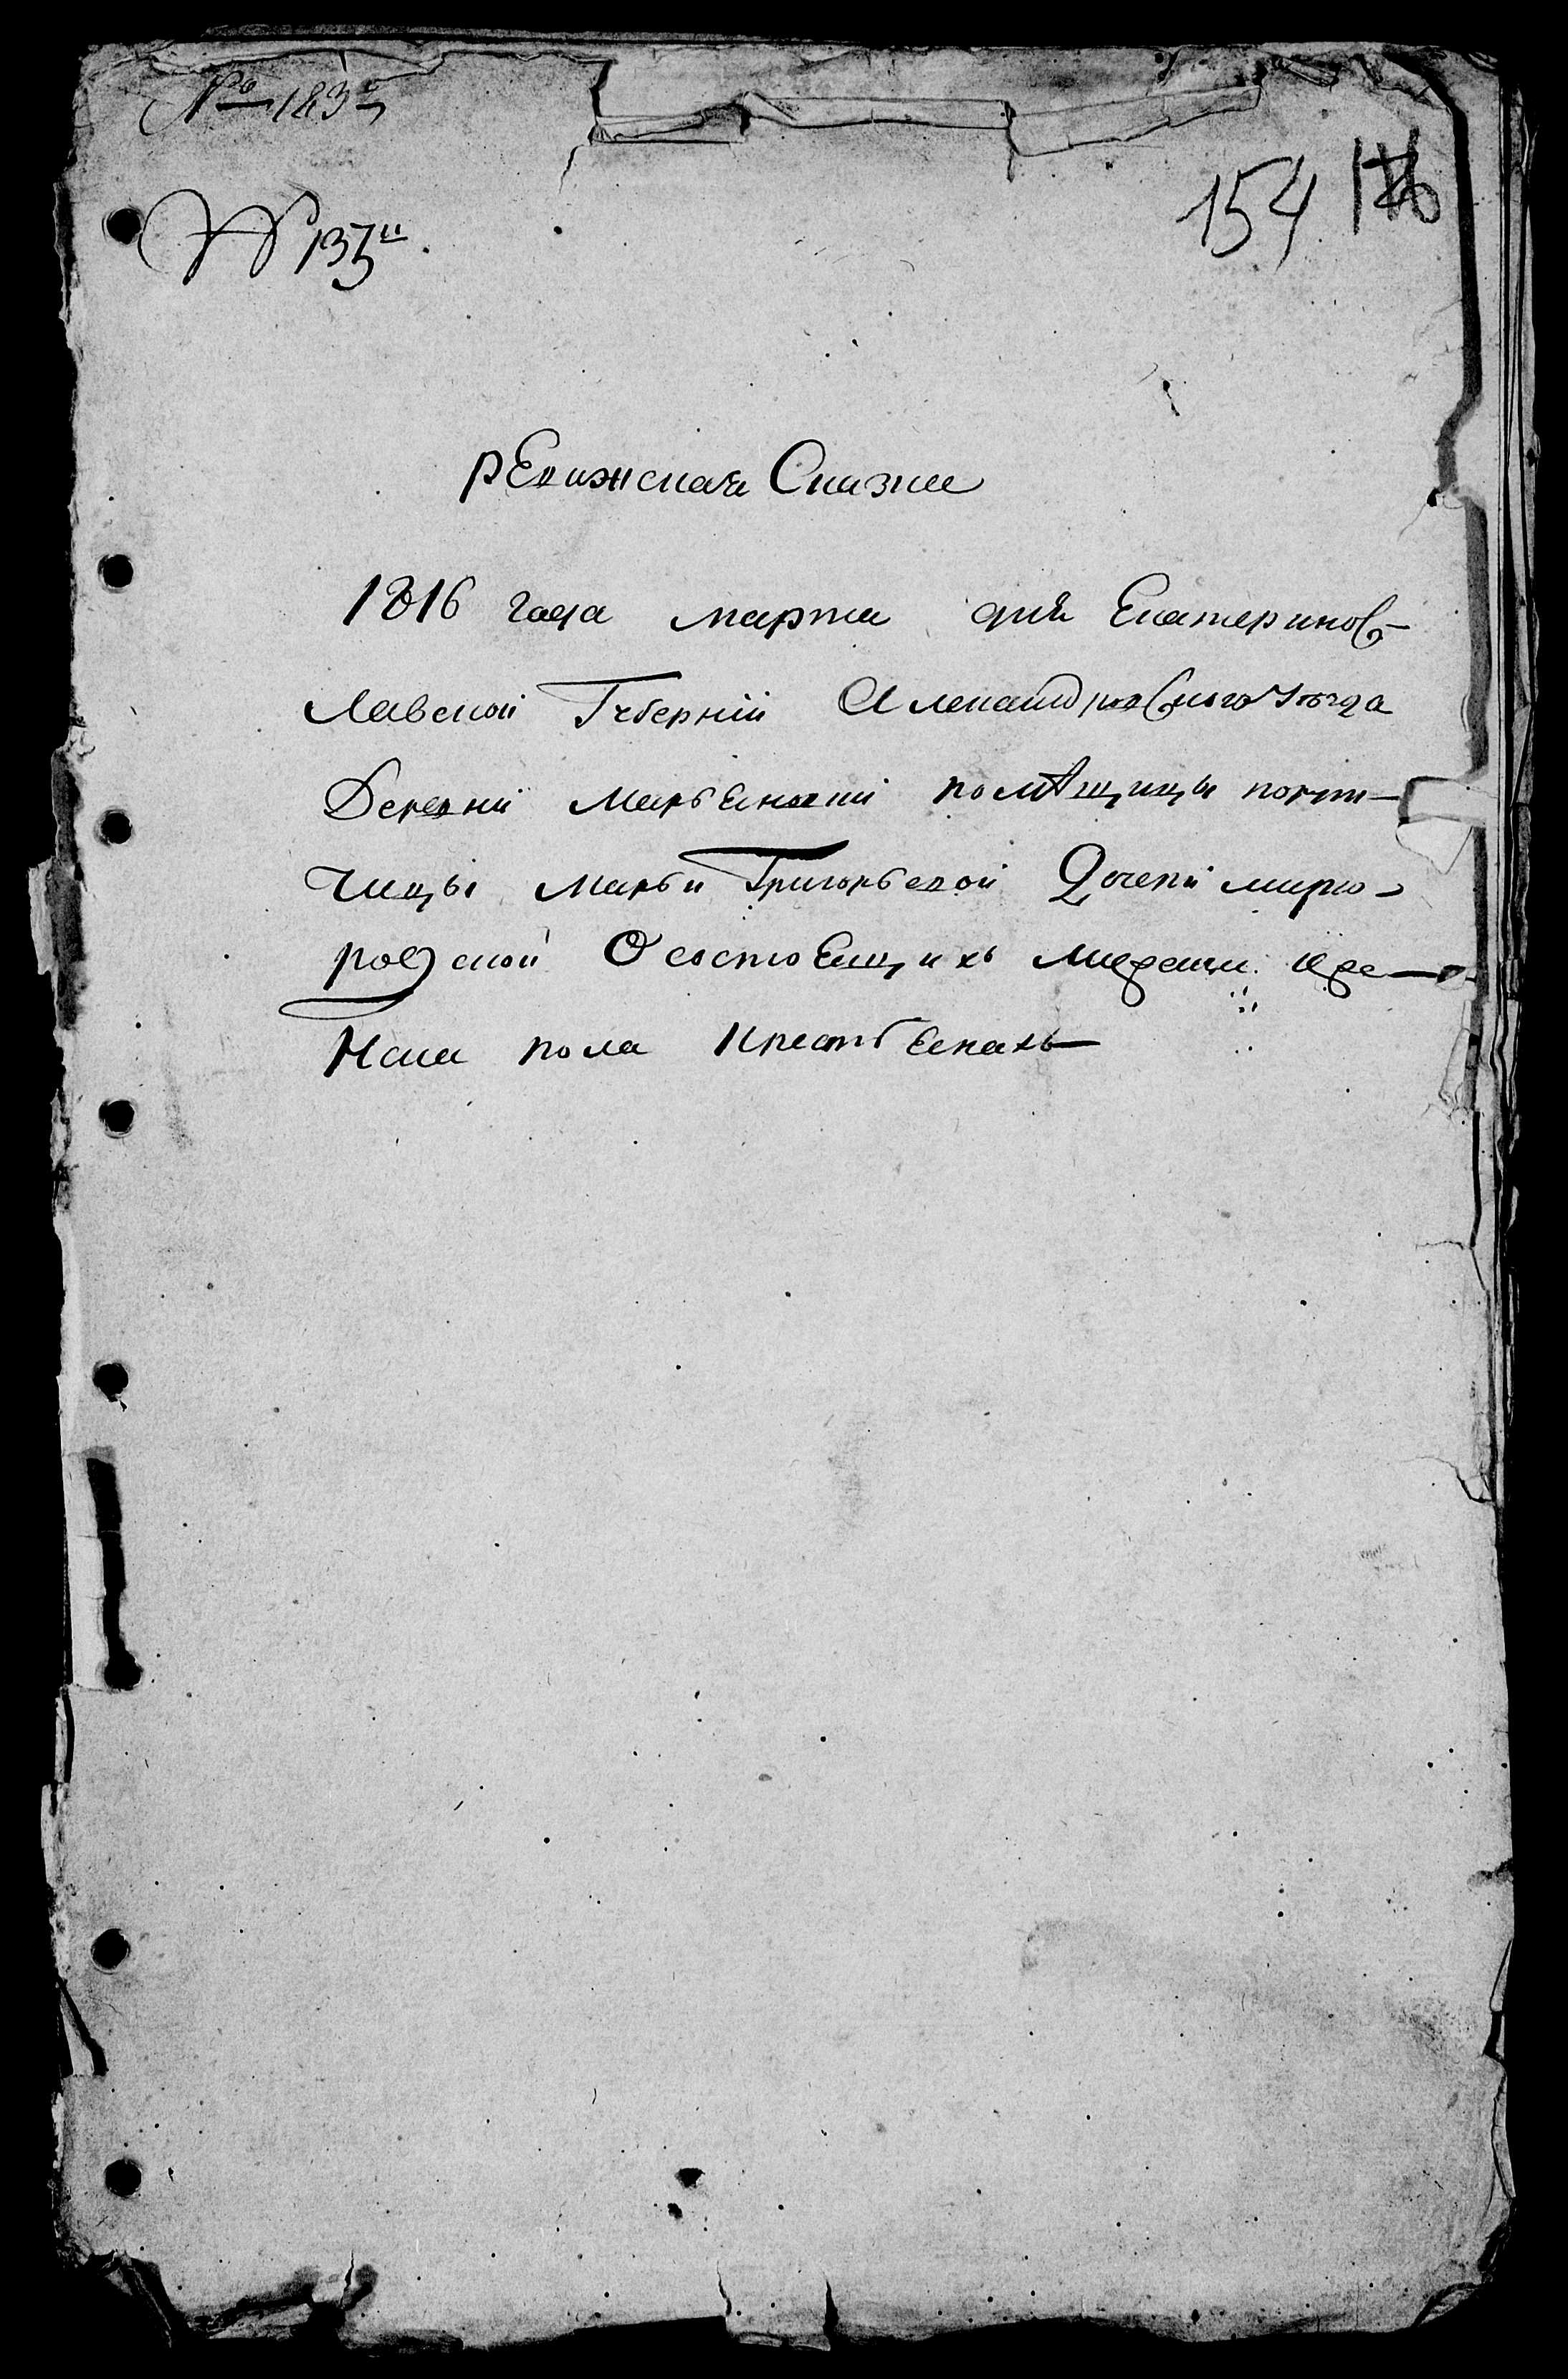 № 183
№ 135й.
154
ревижская Сказка
1816 года марта дня Екатеринос-
лавской Губернїи Александровского уѣзда
Деревни Марьевкы помѣщицы порут-
чицы Марьи Григорьевой Дочери мирго-
родской О состоещихъ мужеска и же-
Нска пола крестьенахъ